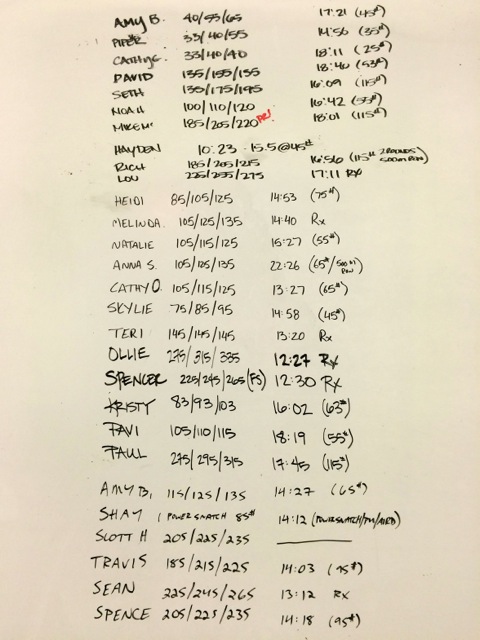 AMY B. 40/55/65 17:21 (45#)
PIPER 33/40/55 14:56 (35#)
CATHY C 33/40/40 18:11 (25#)
DAVID 135/155/155 18:40 (53#)
SETH 135/175/195 16:09 (115#)
NOAH 100/110/120 16:42 (55#)
MIKE M. 185/205/220 PR! 18:01 (115#)
HAYDEN 10:23 - 15.5@45#
RICH 185/205/215 16:56 (115# 2 ROUNDS 500M ROW)
LOU 225/255/275 17:11 RX
HEIDI 85/105/125 14:53 (75#)
MELINDA. 105/125/135 14:40 Rx
NATALIE 105/115/125 15:27 (55#)
ANNA S. 105/125/135 22:26 (65#/500M ROW)
CATHY O. 105/115/125 13:27 (65#)
SKYLIE 75/85/95 14:58 (45#)
TERI 145/145/145 13:20 Rx
OLLIE 275/315/335 12:27 Rx
SPENCER 225/245/265 (FS) 12:30 Rx
KRISTY 83/93/103 16:02 (63#)
PAVI 105/110/115 18:19 (55#)
PAUL 275/295/315 17:45 (115#)
AMY B, 115/125/135 14:27 (65#)
SHAY (POWER SNATCH 85# 14:12 (POWER SNATCH/
SCOTT H 205/225/235
TRAVIS 185/215/225 14:03 (95#)
SEAN 225/245/265 13:12 RX
SPENCE 205/225/235 14:18 (95#)